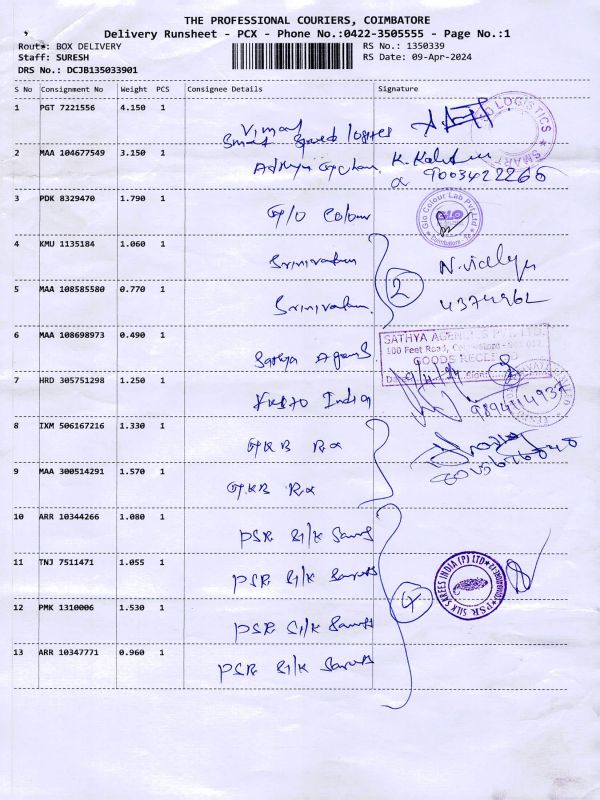 THE PROFESSIONAL COURIERS, COIMBATORE
Delivery Runsheet - PCX - Phone No.:0422-3505555 - Page No.:1
Route: BOX DELIVERY
RS No.: 1350339
Staff: SURESH
RS Date: 09-Apr-2024
DRS No.: DCJB135033901
S No Consignment No Weight PCS Consignee Details Signature
1 PGT 7221556 4.150 1
LOGISTICS
SMART
2 MAA 104677549 3.150 1
9003422266
3 PDK 8329470 1.790 1 Glo Colour
Glo Colour Lab Pvt Ltd
GLO
Coimbatore
4 KMU 1135184 1.060 1 Srinivasan
2
N. Vidhya
5 MAA 108585580 0.770 1 Srinivasan
SATHYA AGENCIES PVT. LTD.
100 Feet Road, Coimbatore - 641 012.
GOODS RECEIVED
Date Sign:
6 MAA 108698973 0.490 1 Sathya
7 HRD 305751298 1.250 1 India
9894114937
8 IXM 506167216 1.330 1 GKB Rx
9 MAA 300514291 1.570 1 GKB Rx
10 ARR 10344266 1.080 1 PSR Silk Sarees
11 TNJ 7511471 1.055 1 PSR Silk Sarees
4
PSR SILK SAREES INDIA (P) LTD
12 PMK 1310006 1.530 1 PSR Silk Sarees
13 ARR 10347771 0.960 1 PSR Silk Sarees